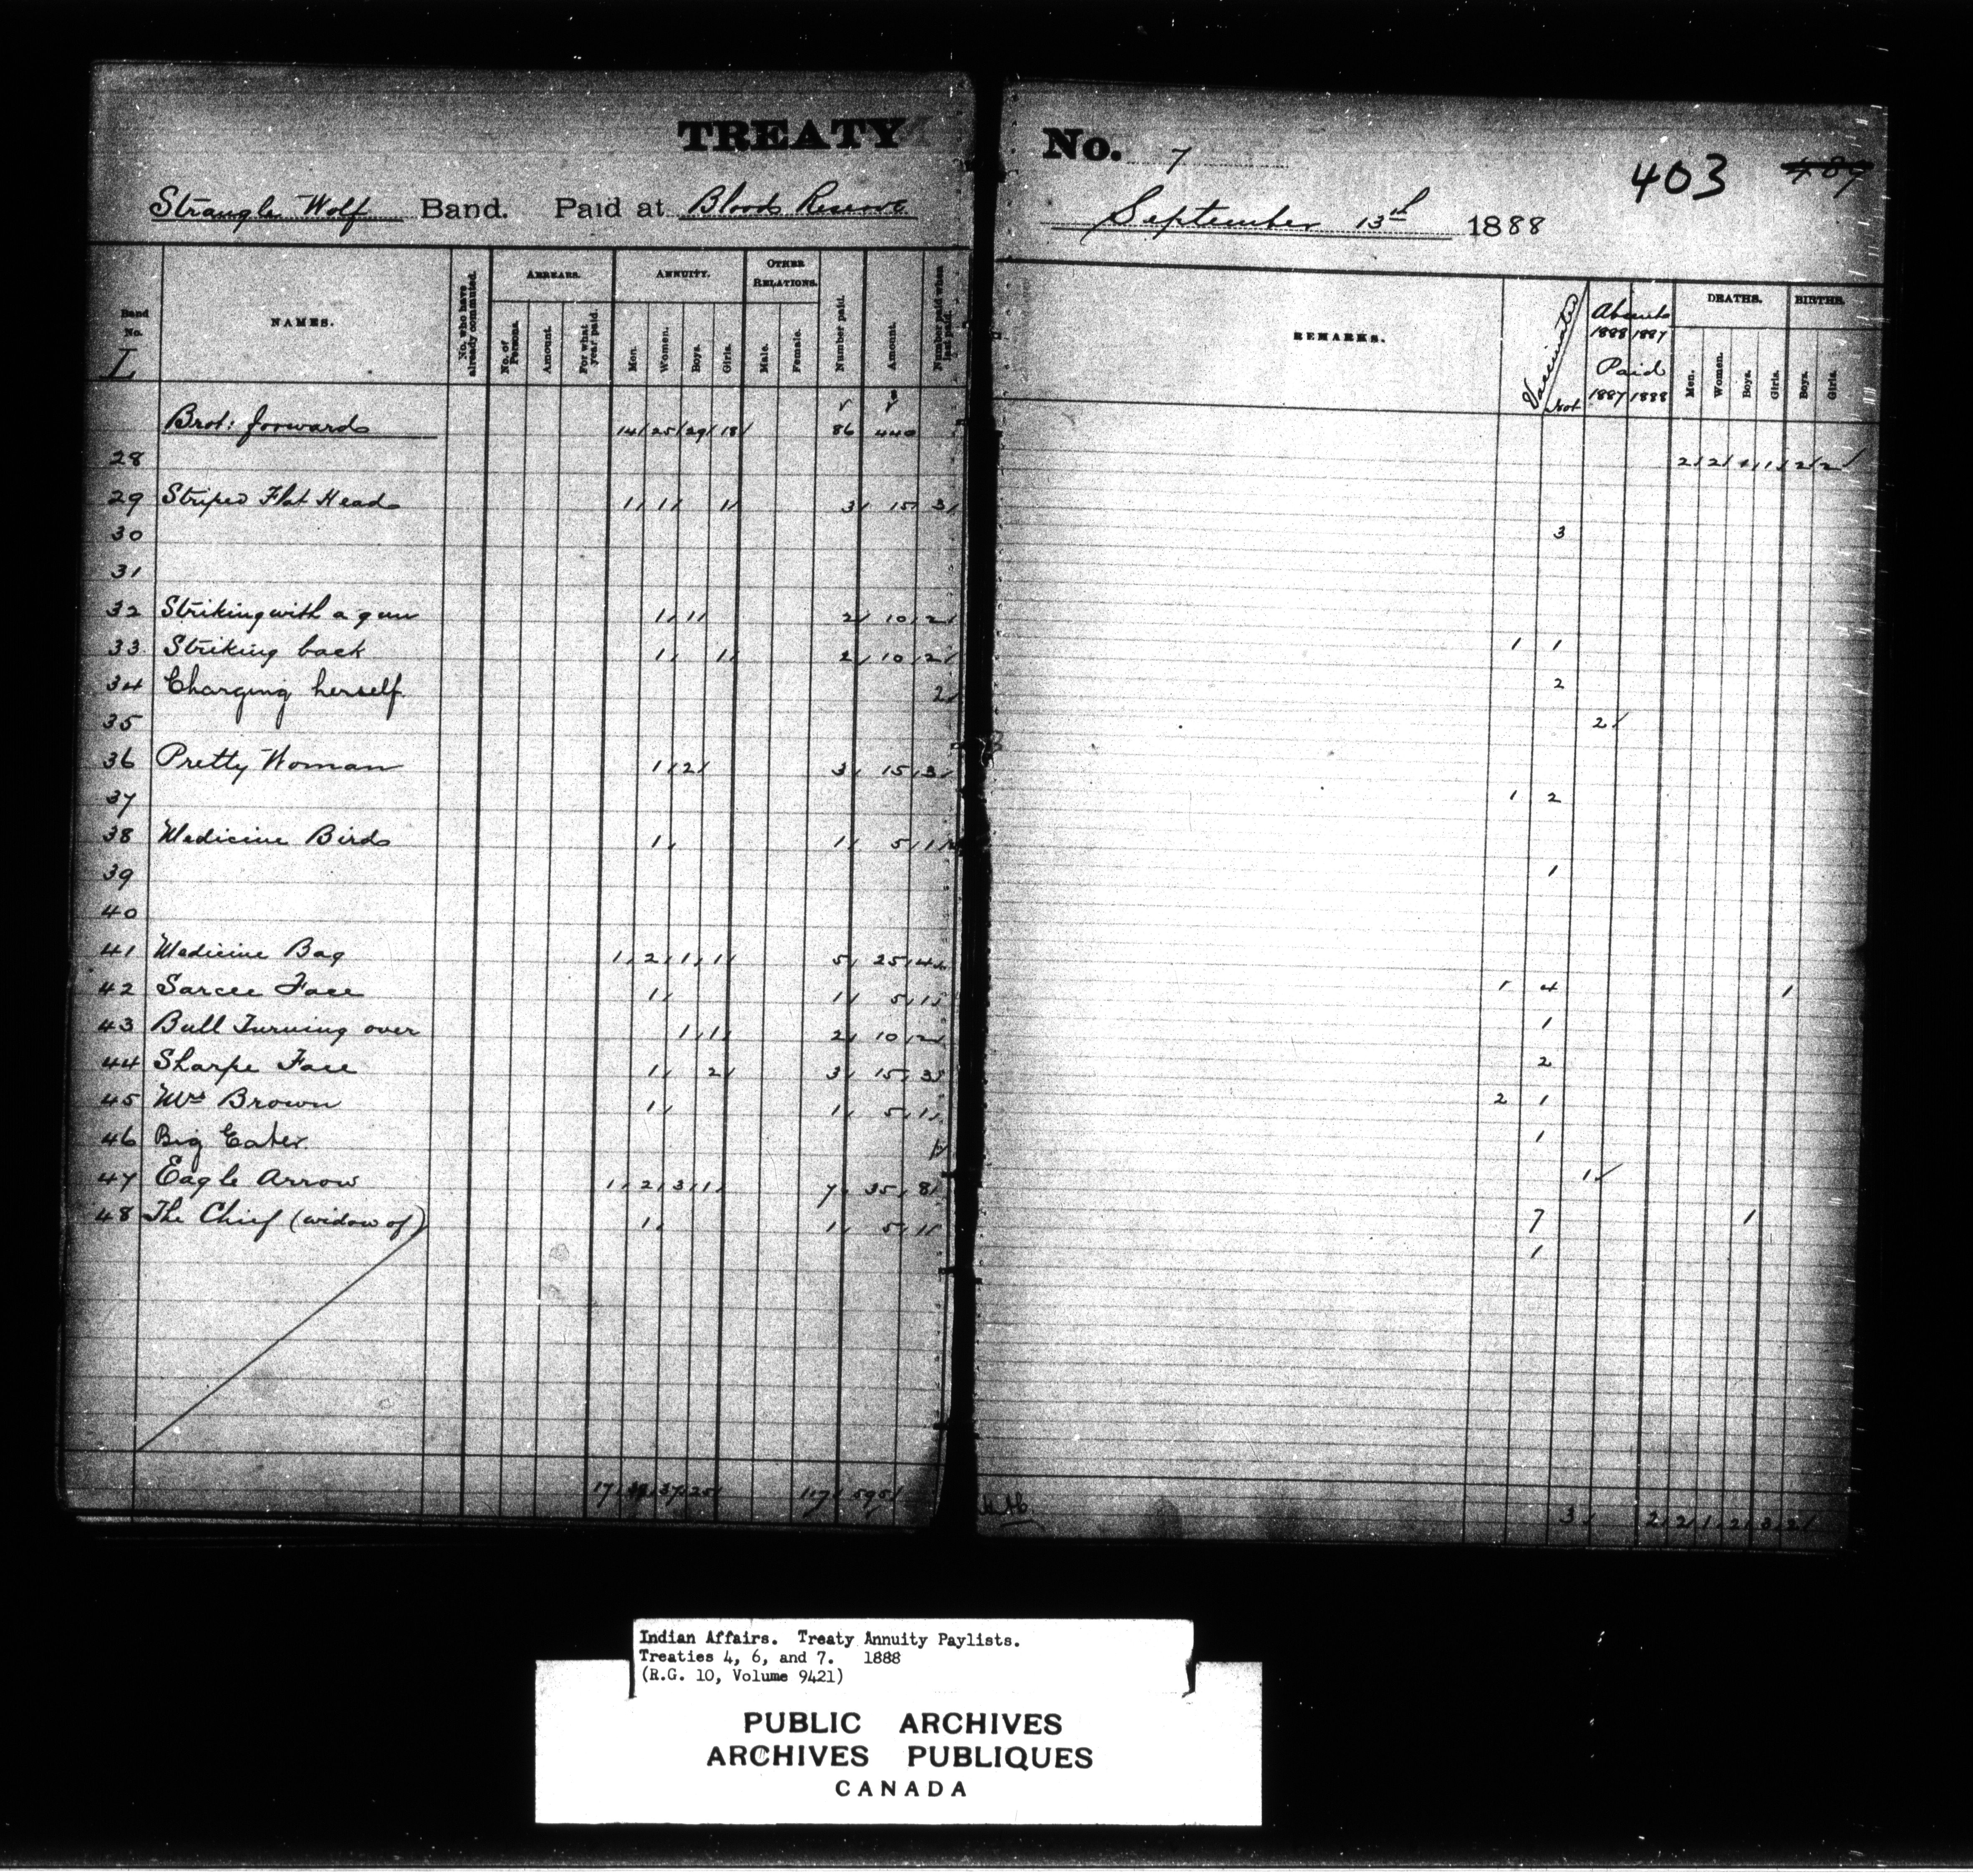 TREATY No. 7
403 489
Strangle Wolf Band. Paid at Bloods Reserve September 13th 1888
Band No. NAMES. No. who have already commuted. ARREARS. ANNUITY. OTHER RELATIONS. Number paid. Amount. Number paid when last paid. REMARKS. Vaccinated Not Absents 1888 1887 Paid 1887 1888 DEATHS. BIRTHS.
No. of Persons. Amount. For what year paid. Men. Women. Boys. Girls. Male. Female. Men. Women. Boys. Girls. Boys. Girls.
L
Brot: forwards 14 25 29 18 86 440 2 2 1 1 2 2
28
29 Striped Flat Heads 1 1 1 3 15 3 3
30
31
32 Striking with a gun 1 1 2 10 2 1 1
33 Striking back 1 1 2 10 2 2
34 Charging herself 2 2
35
36 Pretty Woman 1 2 3 15 3 1 2
37
38 Medicine Birds 1 1 5 1 1
39
40
41 Medicine Bag 1 2 1 1 5 25 4 1 4 1
42 Sarcee Face 1 1 5 1 1
43 Bull Turning over 1 1 2 10 2 2
44 Sharpe Face 1 2 3 15 3 2 1
45 Mrs Brown 1 1 5 1 1
46 Big Eater 1 1
47 Eagle Arrow 1 2 3 1 7 35 8 7 1
48 The Chief (widow of) 1 1 5 1 1
17 37 25 117 595 3 2 2 1 2 3 2
Indian Affairs. Treaty Annuity Paylists.
Treaties 4, 6, and 7. 1888
(R.G. 10, Volume 9421)
PUBLIC ARCHIVES
ARCHIVES PUBLIQUES
CANADA